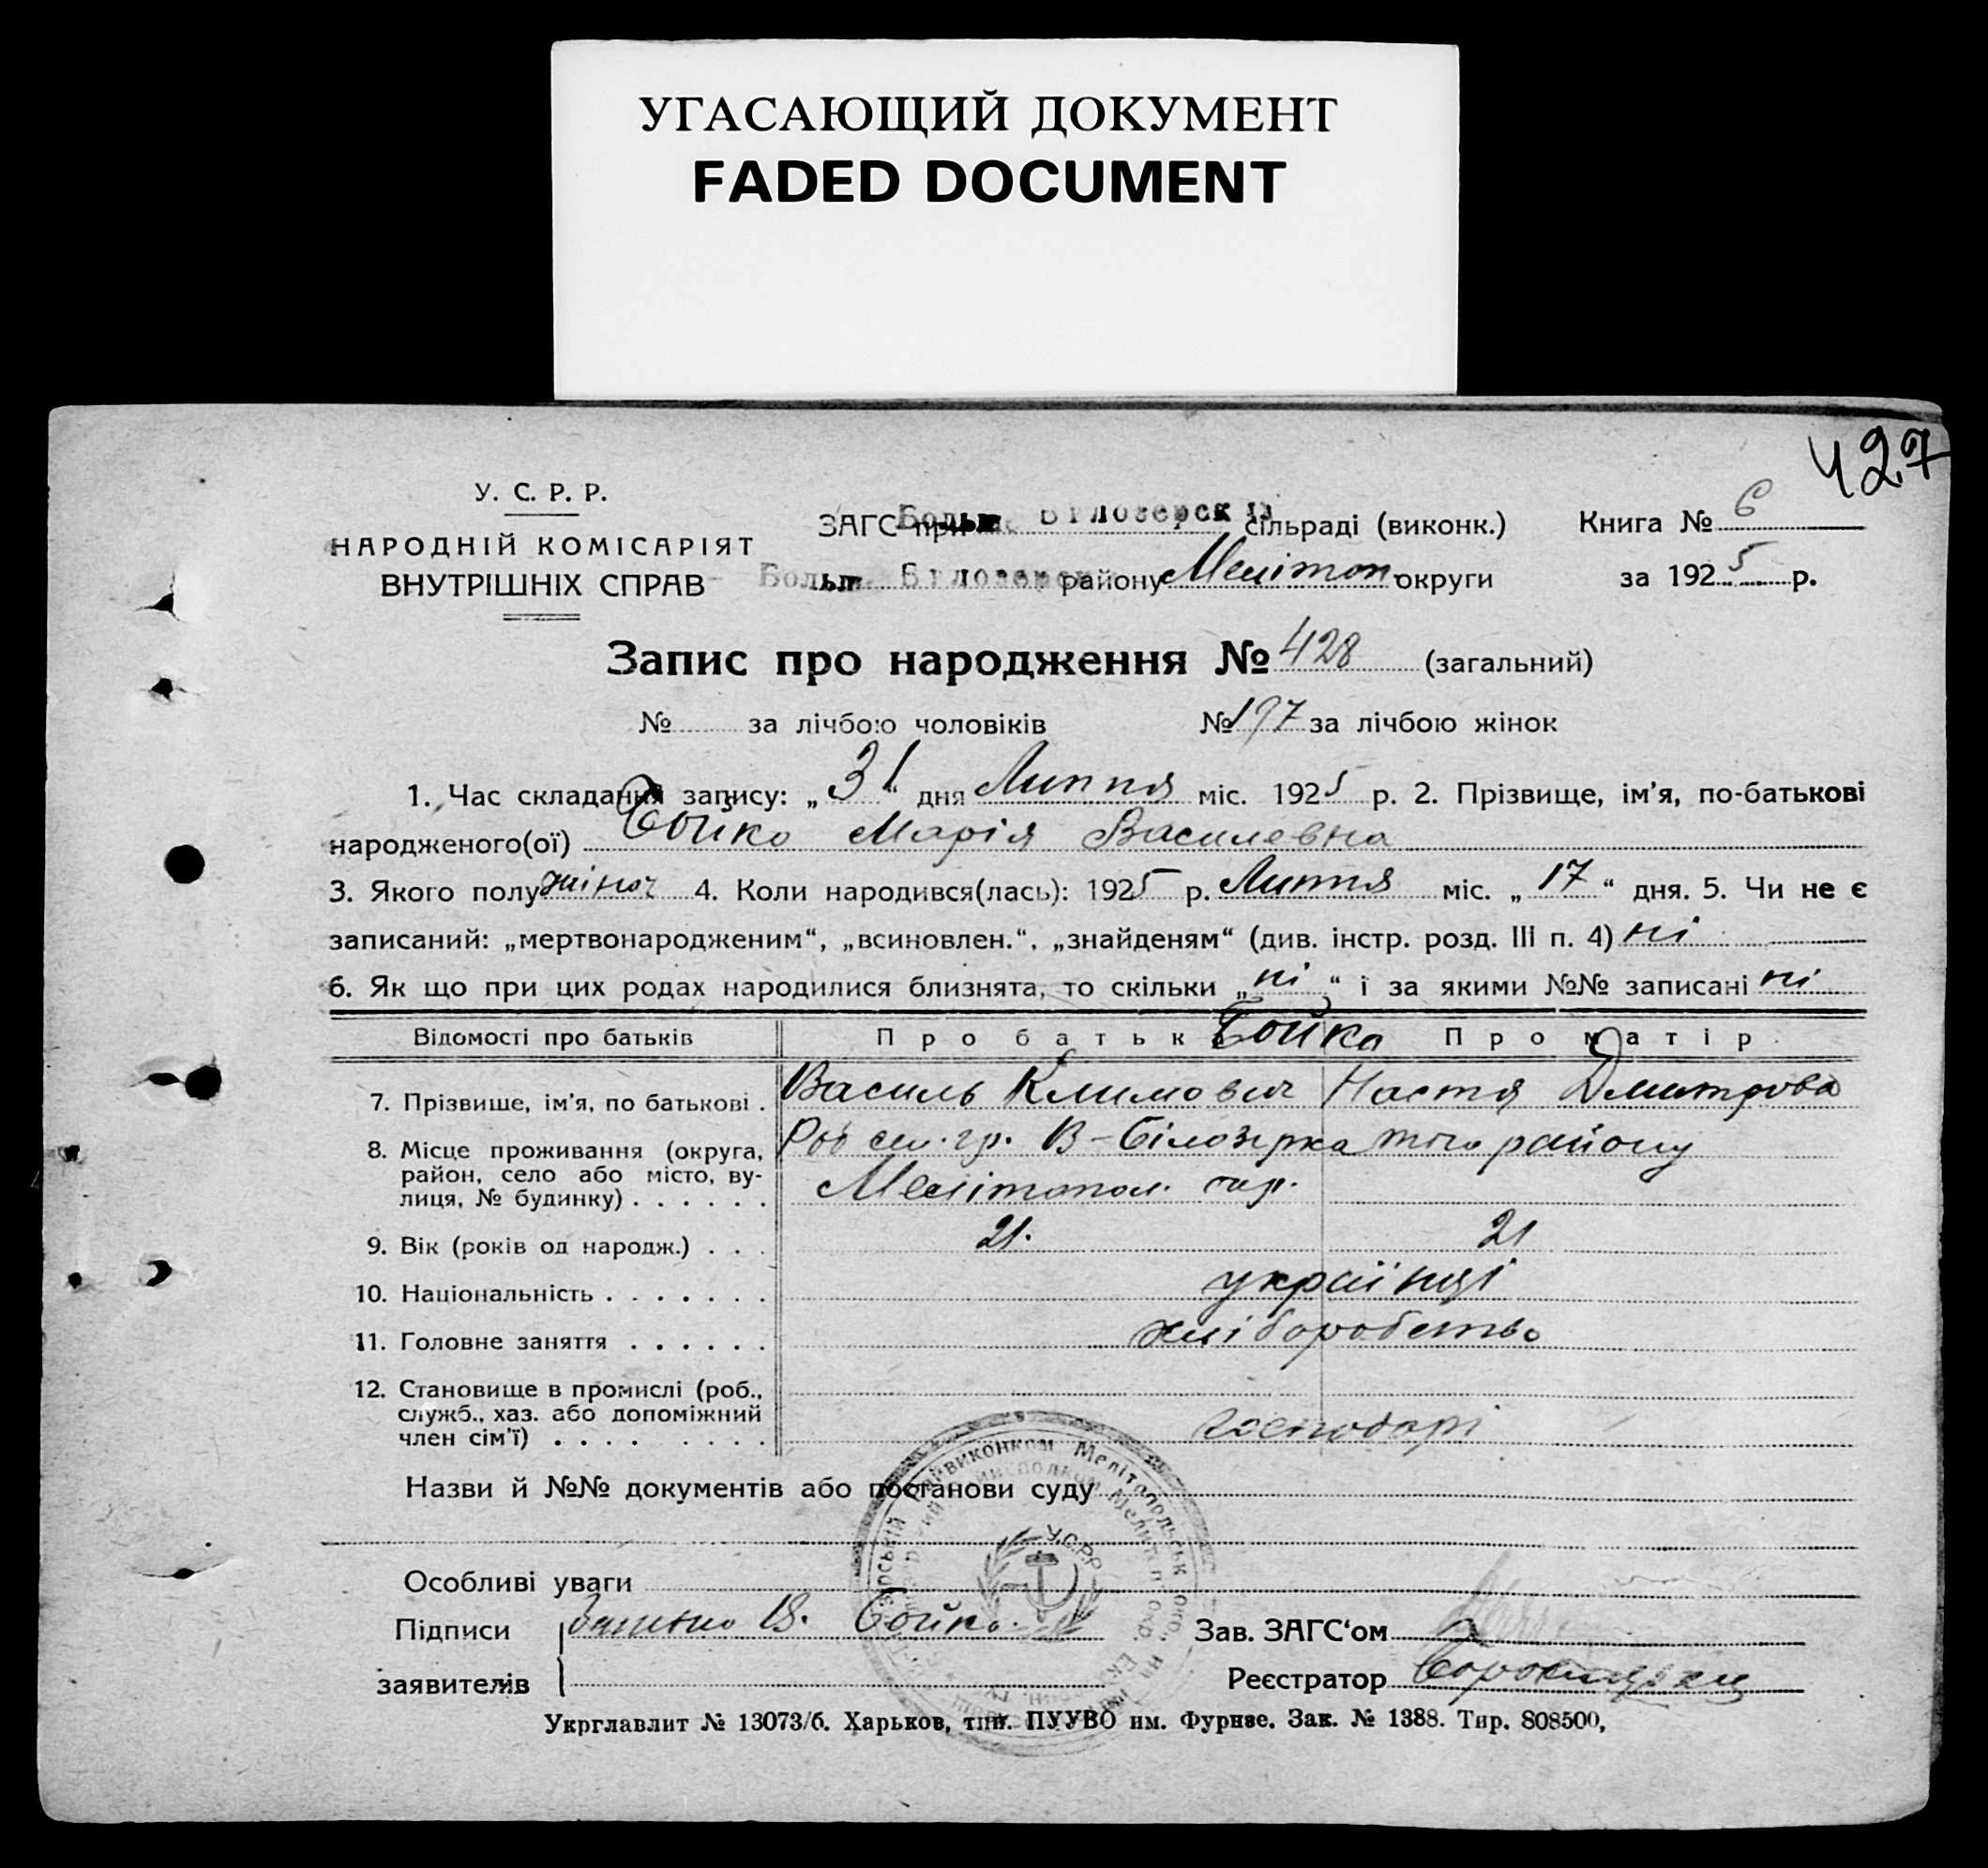 УГАСАЮЩИЙ ДОКУМЕНТ
FADED DOCUMENT
427
У. С. Р. Р.
НАРОДНІЙ КОМІСАРІЯТ
ВНУТРІШНІХ СПРАВ
ЗАГС при Больш Білозерськ сільраді (виконк.) Книга № 6
Больш Білозерськ району Мелітоп. округи за 1925 р.
Запис про народження № 428 (загальний)
№ за лічбою чоловіків № 197 за лічбою жінок
1. Час складання запису: „31“ дня Липня міс. 1925 р. 2. Прізвище, ім'я, по-батькові
народженого(ої) Бойко Марія Василевна
3. Якого полу жіноч 4. Коли народився(лась): 1925 р. Липня міс. „17“ дня. 5. Чи не є
записаний: „мертвонародженим“, „всиновлен.“, „знайденям“ (див. інстр. розд. III п. 4) ні
6. Як що при цих родах народилися близнята, то скільки „ні“ і за якими №№ записані ні
Відомості про батьків Про батьк Про матір
Бойко
7. Прізвище, ім'я, по батькові . Василь Климович Настя Дмитрова
8. Місце проживання (округа, район, село або місто, вулиця, № будинку) . . . . . . сел. гр. В-Білозірка того району
Мелітопол. окр.
9. Вік (років од народж.) . . . 21. 21
10. Національність . . . . . . . українці
11. Головне заняття . . . . . . хліборобство
12. Становище в промислі (роб., служб., хаз. або допоміжний член сім'ї) . . . . господарі
Назви й №№ документів або постанови суду
Особливі уваги
Підписи заявителів В. Бойко. Зав. ЗАГС'ом
Реєстратор
У.С.Р.Р.
Укрглавлит № 13073/б. Харьков, тип. ПУУВО им. Фурнзе. Зак. № 1388. Тир. 808500,